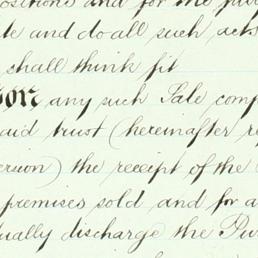 positions and for the pur
le and do all such acts
shall think fit
on any such Sale comp
aid trust (hereinafter re
erson) the receipt of the
premises sold and for a
ually discharge the Pur